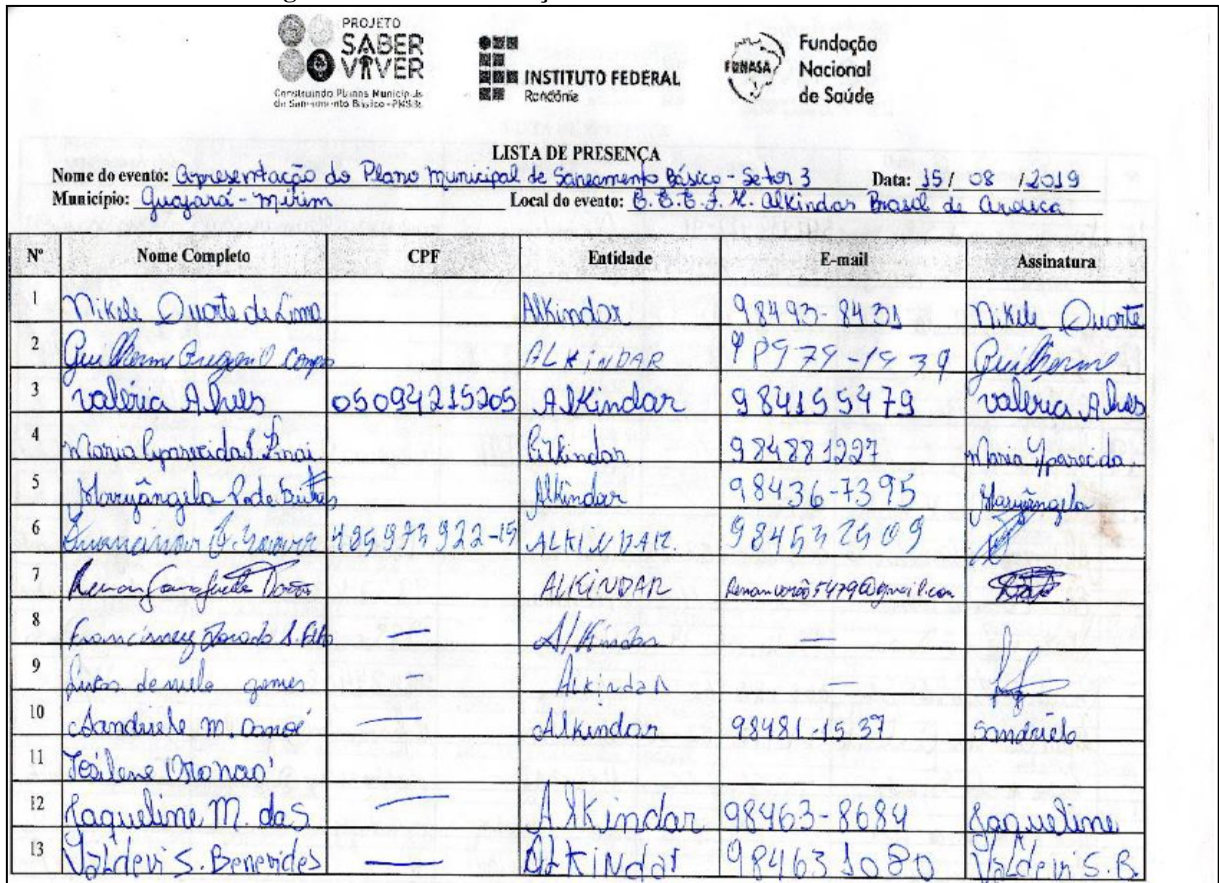 PROJETO
SABER
VIVER
Construindo Planos Municipais
de Saneamento Básico - PMSB
INSTITUTO FEDERAL
Rondônia
FUNASA
Fundação
Nacional
de Saúde
LISTA DE PRESENÇA
Nome do evento: Apresentação do Plano Municipal de Saneamento Básico - Setor 3 Data: 15/ 08 /2019
Município: Guajará-Mirim Local do evento: E.E.E.F.M. Alkindar Brasil de Arouca
Nº Nome Completo CPF Entidade E-mail Assinatura
1 Nikele Duarte de Lima Alkindar 98493-8431 Nikele Duarte
2 Guilherme ALKINDAR Guilherme
3 Valéria Alves 05094215205 Alkindar 984155479 Valéria Alves
4 Maria Aparecida Alkindar 984881227 Maria Aparecida
5 Maryângela Alkindar 98436-7395 Maryângela
6 ALKINDAR
7 Renan ALKINDAR
8 — Alkindar —
9 Lucas de melo gomes — Alkindar —
10 Sandriele M. — Alkindar 98481-1537 Sandriele
11
12 Jaqueline M. das — Alkindar 98463-8684 Jaqueline
13 Valdevi S. Benevides — Alkindar 984631080 Valdevi S.B.